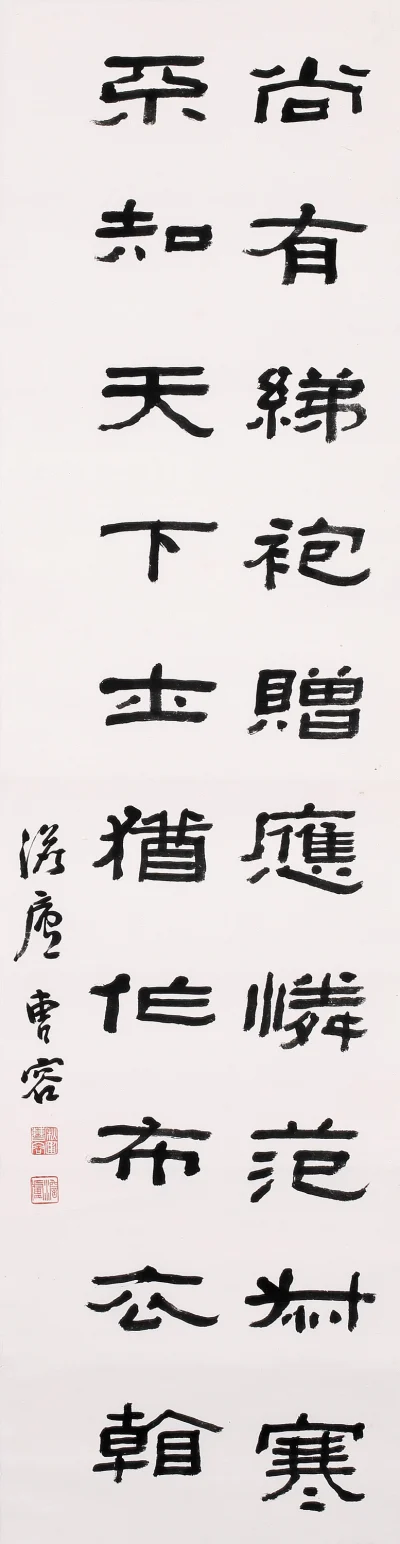 尚有綈袍贈應憐范叔寒
不知天下士猶作布衣看
澹廬曹容